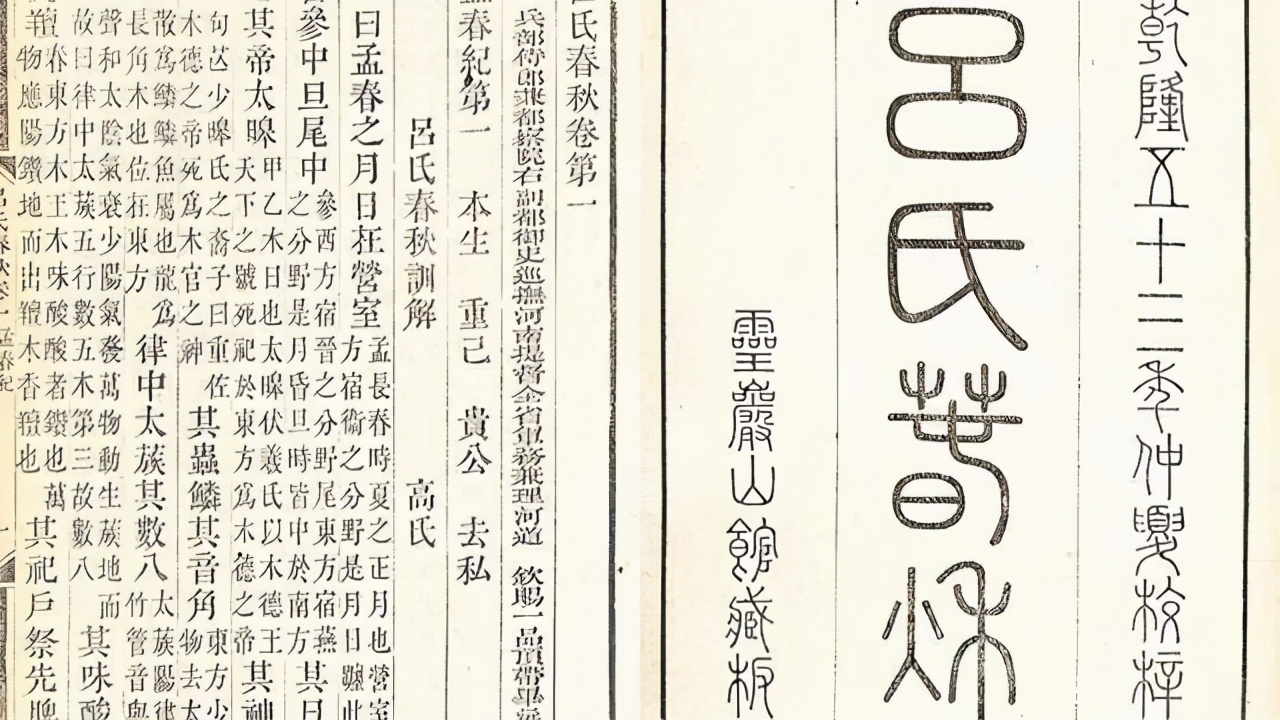 乾隆五十三年仲夏校梓
呂氏春秋
靈巖山館藏板
呂氏春秋卷第一
兵部侍郎兼都察院右副都御史巡撫河南提督全省軍務兼理河道 欽賜一品頂帶畢沅
孟春紀第一 本生 重己 貴公 去私
呂氏春秋訓解 高氏
曰孟春之月日在營室 孟長春時夏之正月也營室 方宿衞之分野是月日躔此
參中旦尾中 參西方宿晉之分野尾東方宿燕 之分野是月昏旦時皆中於南方 其日
其帝太皥 甲乙木日也太皥伏羲氏以木德王 天下之號死祀於東方爲木德之帝 其神
句芒少皥氏之裔子曰重佐 木德之帝死爲木官之神 其蟲鱗其音角 東方少 物去太
散爲鱗鱗魚屬也龍爲 長角木也位在東方 律中太蔟其數八 太蔟陽律 竹管音與
聲和太陰氣衰少陽氣發萬物動生蔟地而 故曰律中太蔟五行數五木第三故數八 其味酸
羶 春東方木王木味酸酸者鑽也萬 物應陽鑽地而出羶木香羶也 其祀戶祭先脾
呂氏春秋卷一 孟春紀 一